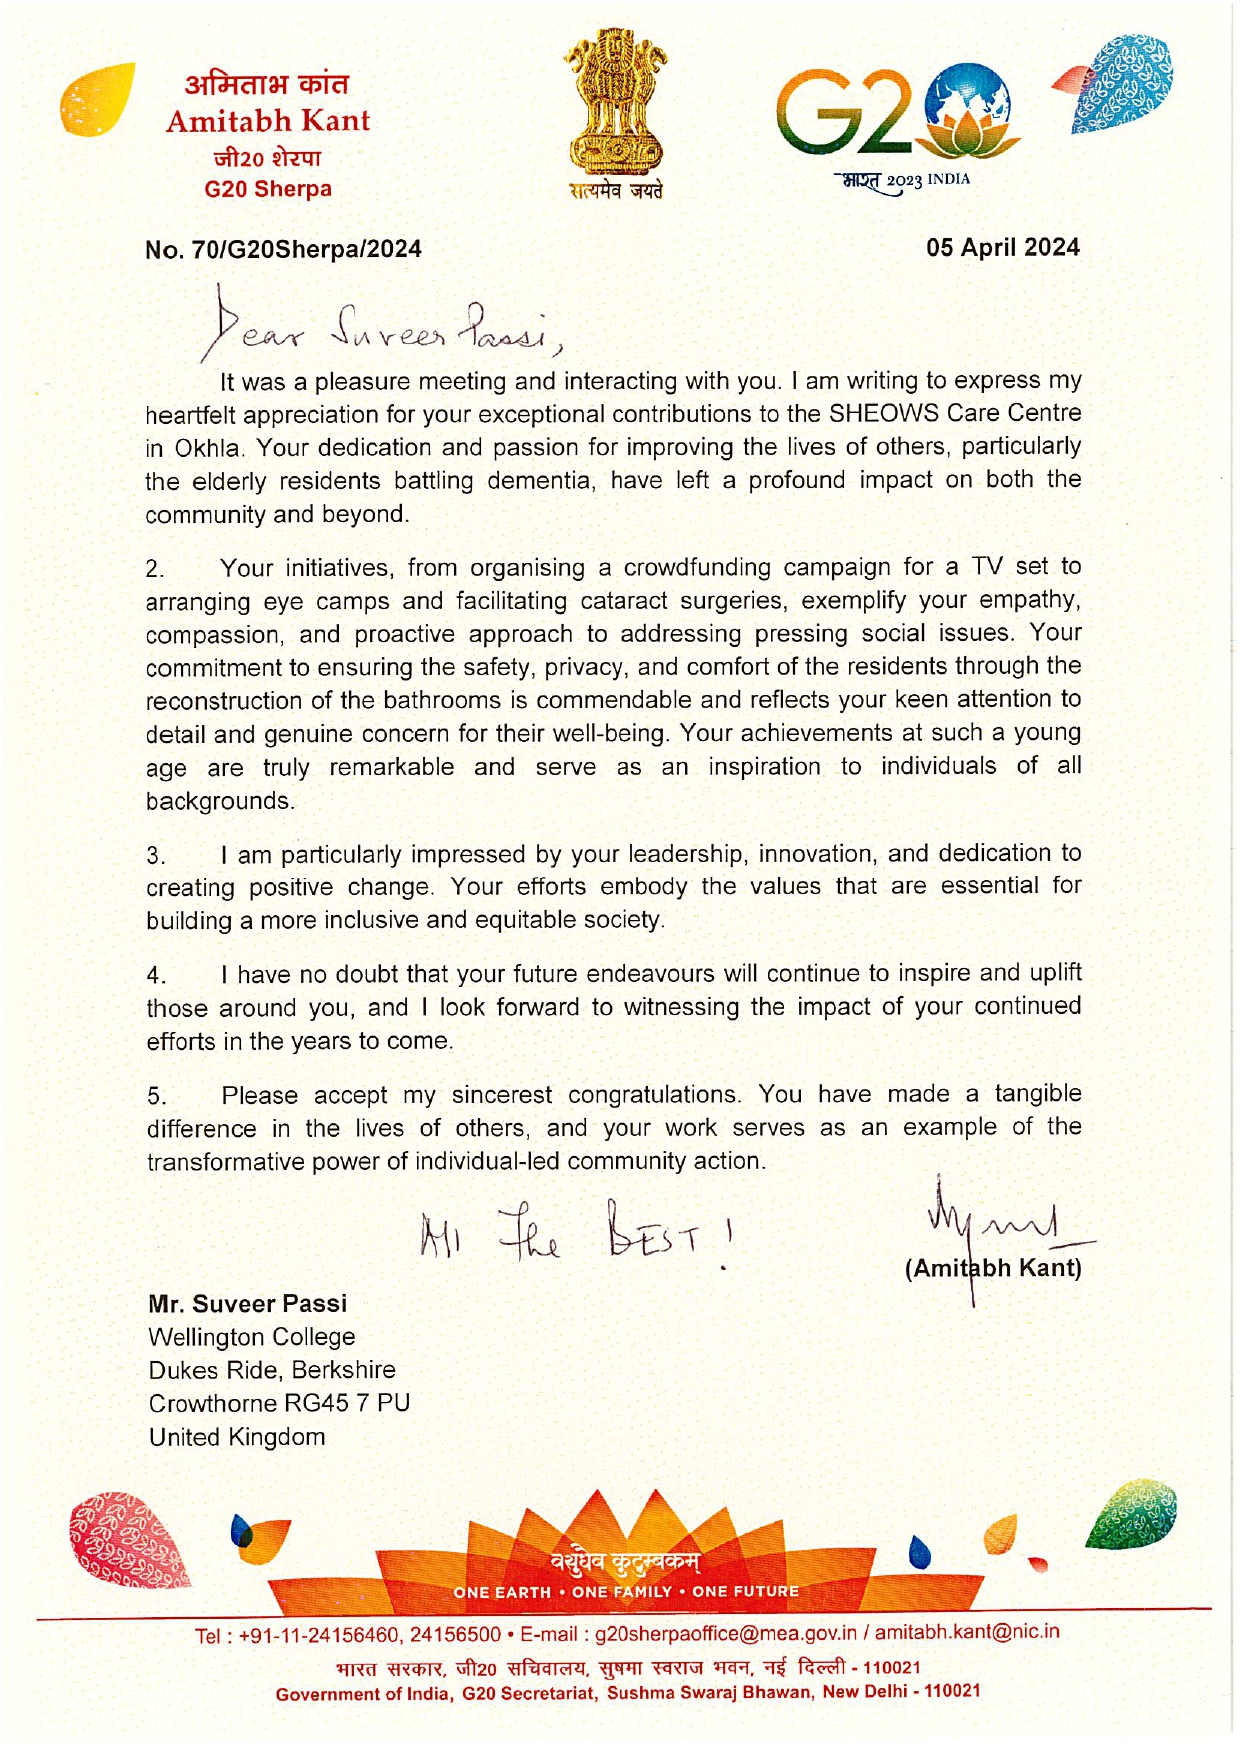 अमिताभ कांत
Amitabh Kant
जी20 शेरपा
G20 Sherpa
सत्यमेव जयते
G20
भारत 2023 INDIA
No. 70/G20Sherpa/2024
05 April 2024
Dear Suveer Passi,
It was a pleasure meeting and interacting with you. I am writing to express my
heartfelt appreciation for your exceptional contributions to the SHEOWS Care Centre
in Okhla. Your dedication and passion for improving the lives of others, particularly
the elderly residents battling dementia, have left a profound impact on both the
community and beyond.
2. Your initiatives, from organising a crowdfunding campaign for a TV set to
arranging eye camps and facilitating cataract surgeries, exemplify your empathy,
compassion, and proactive approach to addressing pressing social issues. Your
commitment to ensuring the safety, privacy, and comfort of the residents through the
reconstruction of the bathrooms is commendable and reflects your keen attention to
detail and genuine concern for their well-being. Your achievements at such a young
age are truly remarkable and serve as an inspiration to individuals of all
backgrounds.
3. I am particularly impressed by your leadership, innovation, and dedication to
creating positive change. Your efforts embody the values that are essential for
building a more inclusive and equitable society.
4. I have no doubt that your future endeavours will continue to inspire and uplift
those around you, and I look forward to witnessing the impact of your continued
efforts in the years to come.
5. Please accept my sincerest congratulations. You have made a tangible
difference in the lives of others, and your work serves as an example of the
transformative power of individual-led community action.
All The BEST!
(Amitabh Kant)
Mr. Suveer Passi
Wellington College
Dukes Ride, Berkshire
Crowthorne RG45 7 PU
United Kingdom
वसुधैव कुटुम्बकम्
ONE EARTH • ONE FAMILY • ONE FUTURE
Tel : +91-11-24156460, 24156500 • E-mail : g20sherpaoffice@mea.gov.in / amitabh.kant@nic.in
भारत सरकार, जी20 सचिवालय, सुषमा स्वराज भवन, नई दिल्ली - 110021
Government of India, G20 Secretariat, Sushma Swaraj Bhawan, New Delhi - 110021